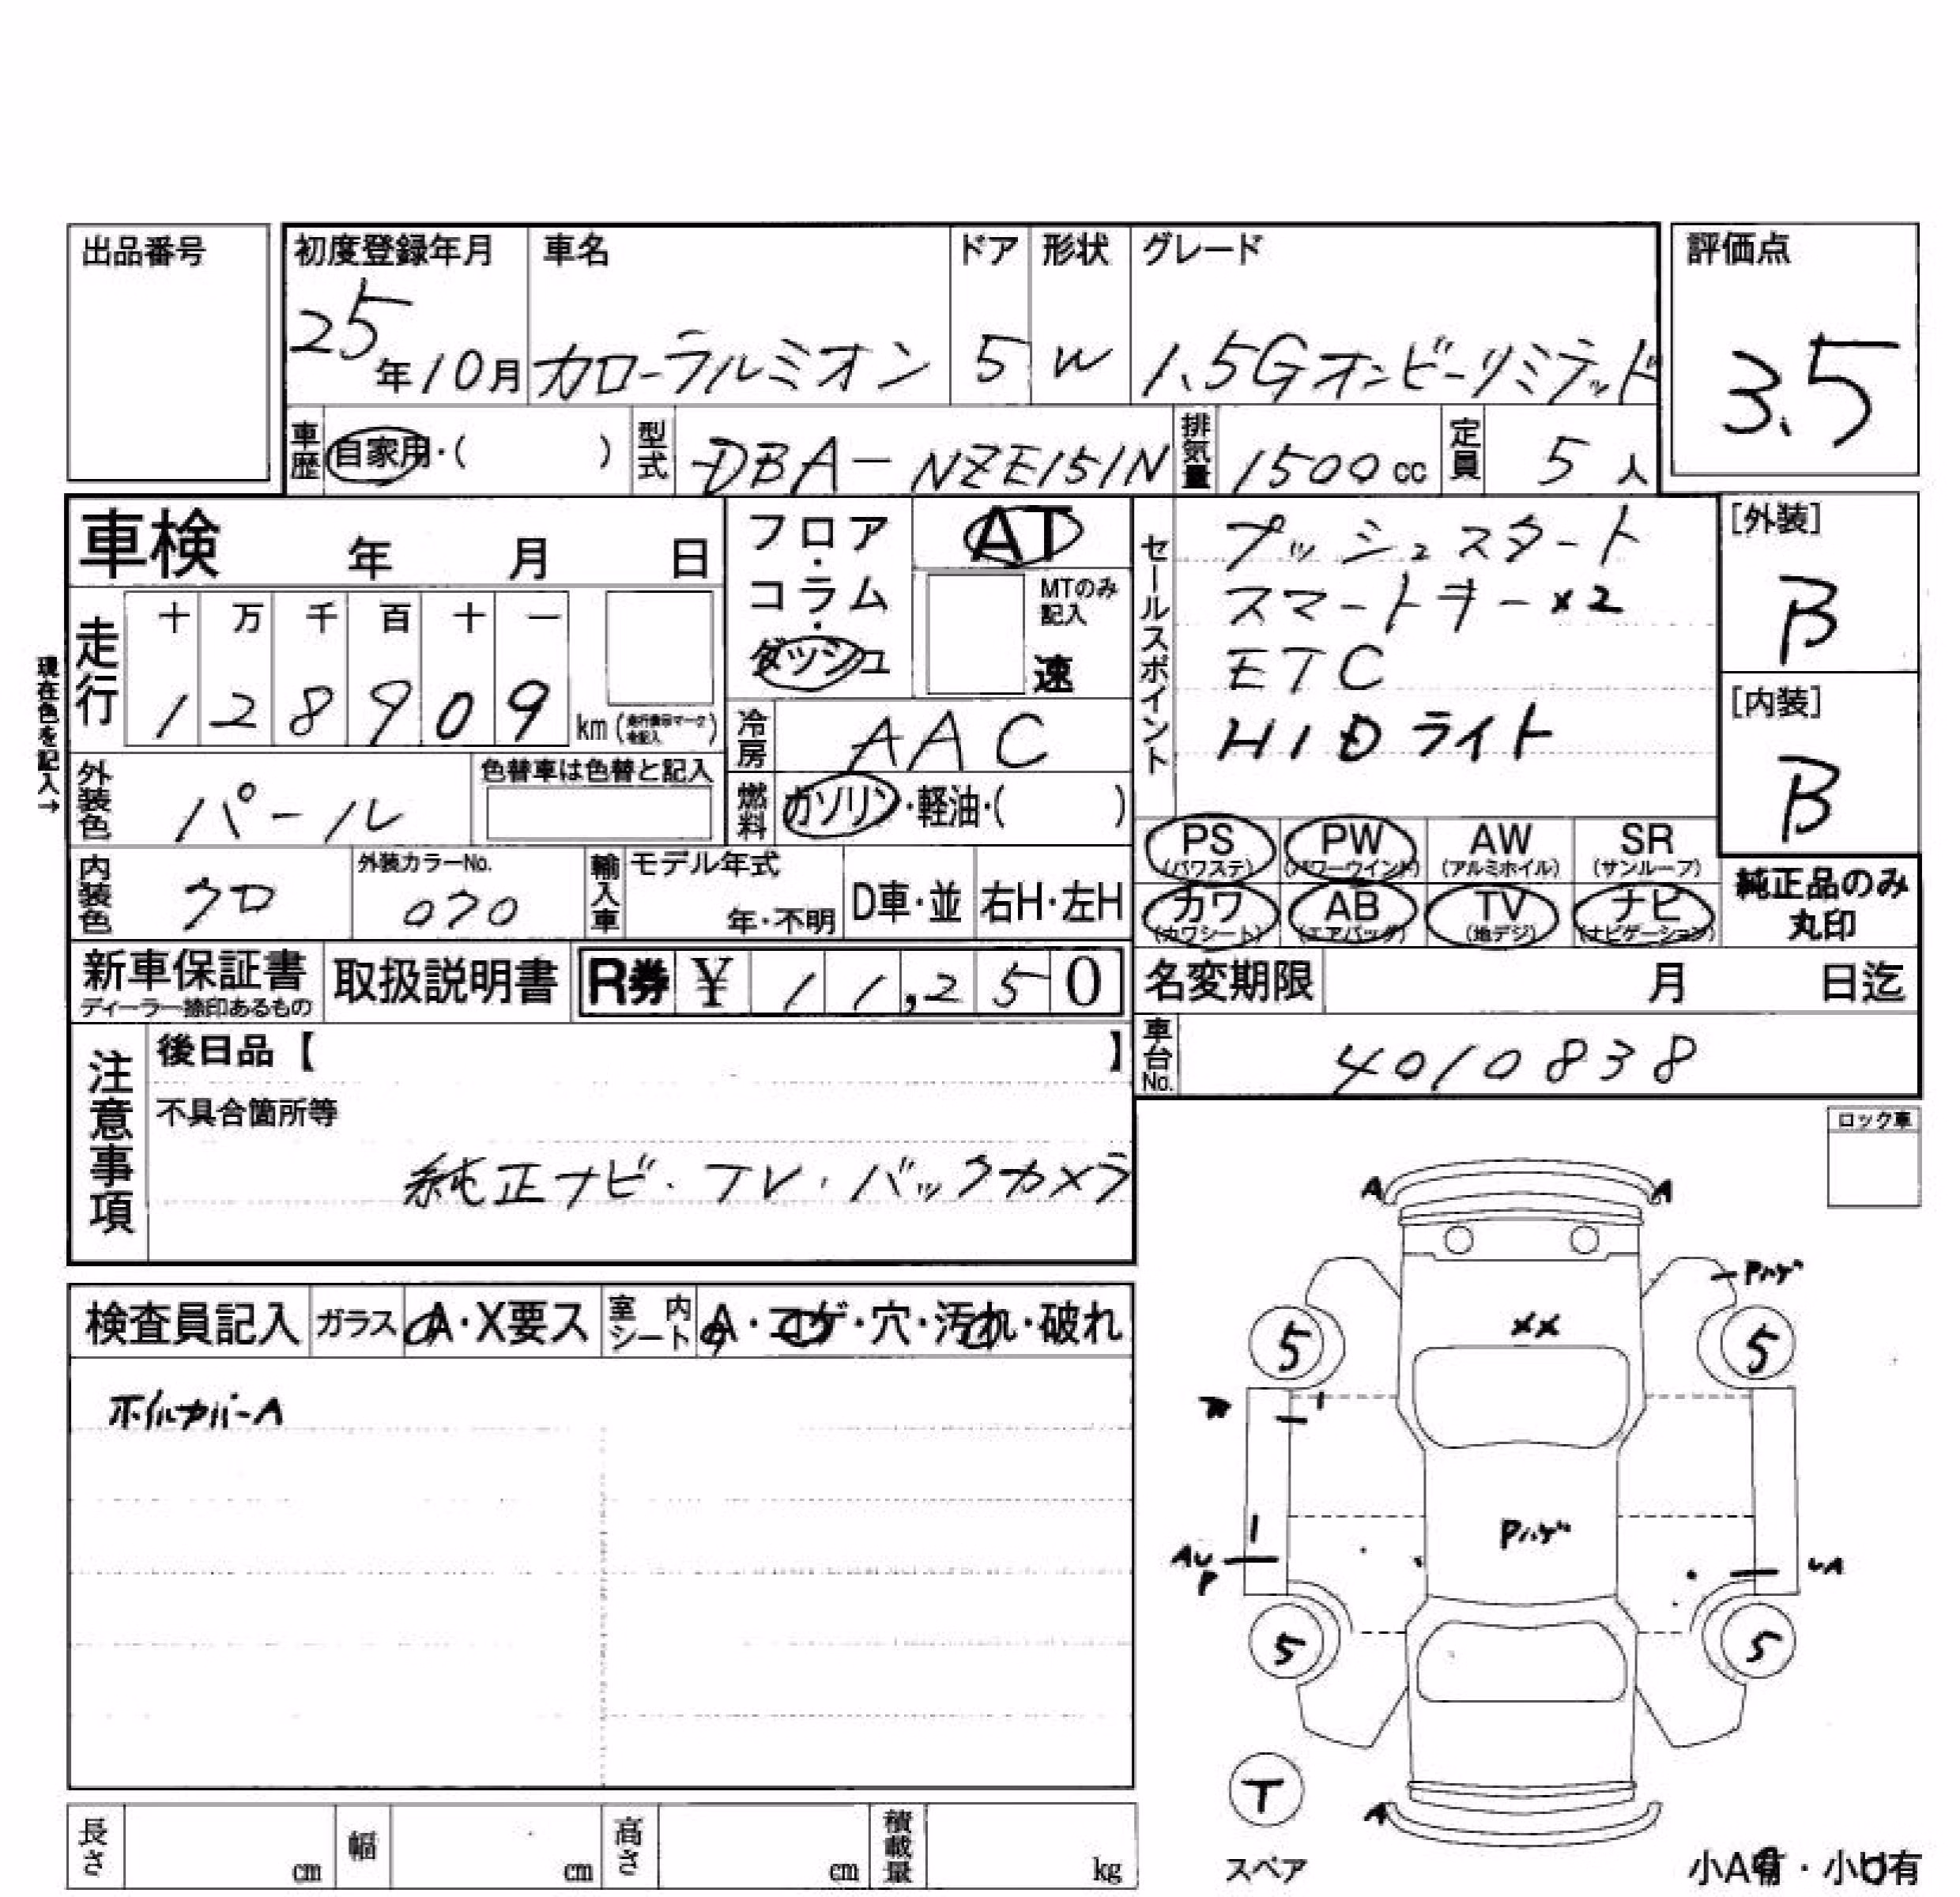 出品番号
初度登録年月 車名 ドア 形状 グレード 評価点
25年10月 カローラルミオン 5 W 1.5Gオンビーリミテッド 3.5
車歴 自家用・( ) 型式 DBA-NZE151N 排気量 1500cc 定員 5人
車検 年 月 日
フロア・コラム・ダッシュ
AT
MTのみ記入
速
セールスポイント
プッシュスタート
スマートキー×2
ETC
HIDライト
[外装]
B
[内装]
B
現在色を記入→
走行 十 万 千 百 十 一
1 2 8 9 0 9 km
冷房 AAC
外装色 パール 色替車は色替と記入
燃料 ガソリン・軽油・( )
PS (パワステ) PW (パワーウインド) AW (アルミホイル) SR (サンルーフ)
カワ (カワシート) AB (エアバッグ) TV (地デジ) ナビ (ナビゲーション)
純正品のみ
丸印
内装色 クロ 外装カラーNo. 070 輸入車 モデル年式 年・不明 D車・並 右H・左H
新車保証書 取扱説明書 R券 ¥ 11,250 名変期限 月 日迄
ディーラー捺印あるもの
車台No. 4010838
注意事項
後日品【 】
不具合箇所等
純正ナビ・TV・バックカメラ
ロック車
検査員記入 ガラス A・X要ス 室内シート A・コゲ・穴・汚れ・破れ
ホイルカバーA
A A
Pハゲ
XX
5 5
Pハゲ
AU
P
UA
5 5
T
スペア
A
小A有・小U有
長さ cm 幅 cm 高さ cm 積載量 kg